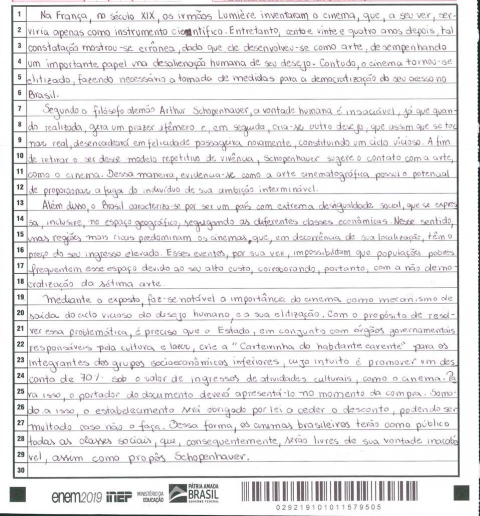 1 Na França, no século XIX, os irmãos Lumière inventaram o cinema, que, a seu ver, ser-
2 viria apenas como instrumento científico. Entretanto, cento e vinte e quatro anos depois, tal
3 constatação mostrou-se errônea, dado que ele desenvolveu-se como arte, desempenhando
4 um importante papel na desalienação humana de seu desejo. Contudo, o cinema tornou-se
5 elitizado, fazendo necessário a tomada de medidas para a democratização do seu acesso no
6 Brasil.
7 Segundo o filósofo alemão Arthur Schopenhauer, a vontade humana é insaciável, já que quan-
8 do realizada, gera um prazer efêmero e, em seguida, cria-se outro desejo, que assim que se tor
9 nas real, desencadeará em felicidade passageira novamente, constituindo um ciclo vicioso. A fim
10 de retirar o ser desse modelo repetitivo de vivência, Schopenhauer sugere o contato com a arte,
11 como o cinema. Dessa maneira, evidencia-se como a arte cinematográfica possui o potencial
12 de proporcionar a fuga do indivíduo de sua ambição interminável.
13 Além disso, o Brasil caracteriza-se por ser um país com extrema desigualdade social, que se expres
14 sa, inclusive, no espaço geográfico, segregando as diferentes classes econômicas. Nesse sentido,
15 nas regiões mais ricas predominam os cinemas, que, em decorrência de sua localização, têm o
16 preço do seu ingresso elevado. Esses eventos, por sua ver, impossibilitam que populações pobres
17 frequentem esse espaço devido ao seu alto custo, corroborando, portanto, com a não demo-
18 cratização da sétima arte.
19 Mediante o exposto, faz-se notável a importância do cinema como mecanismo de
20 saída do ciclo vicioso do desejo humano, e a sua elitização. Com o propósito de resol-
21 ver essa problemática, é preciso que o Estado, em conjunto com órgãos governamentais
22 responsáveis pela cultura e lazer, crie a "Carteirinha do habitante carente" para os
23 integrantes dos grupos socioeconômicos inferiores, cujo intuito é promover um des
24 conto de 70% sob o valor de ingressos de atividades culturais, como o cinema. Pa
25 ra isso, o portador do documento deverá apresentá-lo no momento da compra. Soma-
26 do a isso, o estabelecimento será obrigado por lei a ceder o desconto, podendo ser
27 multado caso não o faça. Dessa forma, os cinemas brasileiros terão como público
28 todas as classes sociais, que, consequentemente, serão livres de sua vontade insaciá
29 vel, assim como propôs Schopenhauer.
30
enem2019 inep MINISTÉRIO DA EDUCAÇÃO PÁTRIA AMADA BRASIL GOVERNO FEDERAL
029219101011579505